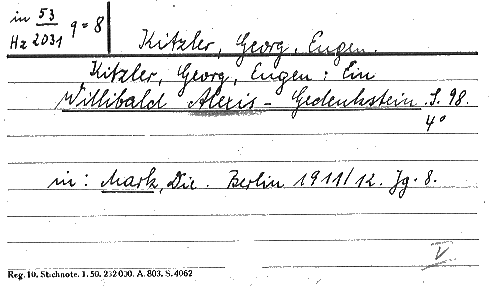 in 53
Hz 2031 q=8
Kitzler, Georg, Eugen.
Kitzler, Georg, Eugen: Ein
Willibald Alexis - Gedenkstein. S. 98.
4°
in: Mark, Die. Berlin 1911/12. Jg. 8.
V
Reg. 10. Stichnote. 1. 50. 232 000. A. 803. S. 4062